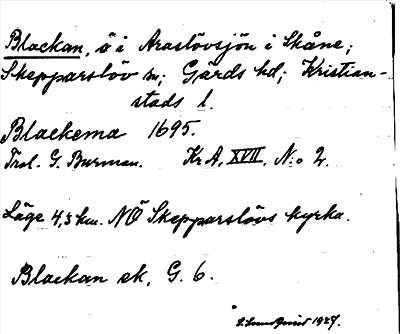 Blackan, ö i Araslövsjön i Skåne;
Skepparslöv sn; Gärds hd; Kristian-
stads l.
Blackema 1695.
Trol. G. Burman. Kr A, XVII, N:o 2.
Läge 4,5 km. NÖ Skepparslövs kyrka.
Blackan ek, G. 6.
S. Lundquist 1927.